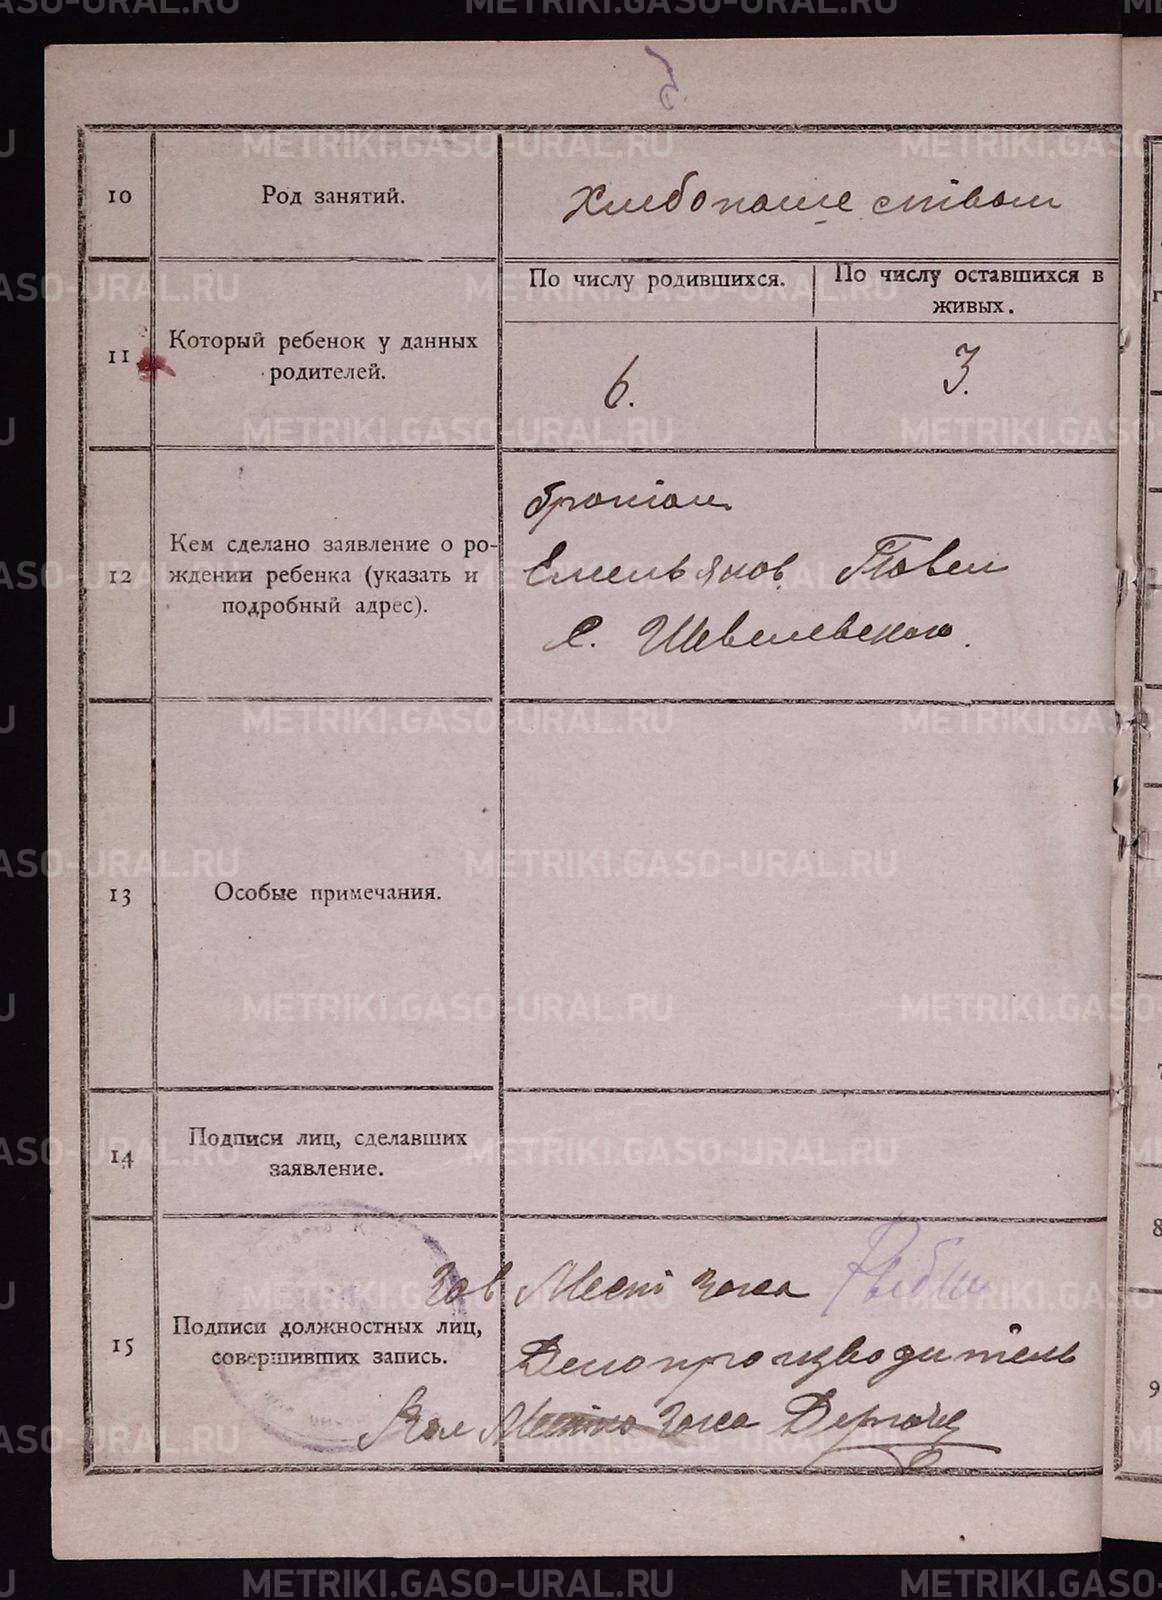 5
10
Род занятий.
Хлебопаше ством
11
Который ребенок у данных
родителей.
По числу родившихся.
По числу оставшихся в
живых.
6.
3.
12
Кем сделано заявление о ро-
ждении ребенка (указать и
подробный адрес).
братом
Емельянов Павел
с. Шевелевского.
13
Особые примечания.
14
Подписи лиц, сделавших
заявление.
15
Подписи должностных лиц,
совершивших запись.
Зав Мест Загса
Делопроизводитель
Загса
METRIKI.GASO-URAL.RU